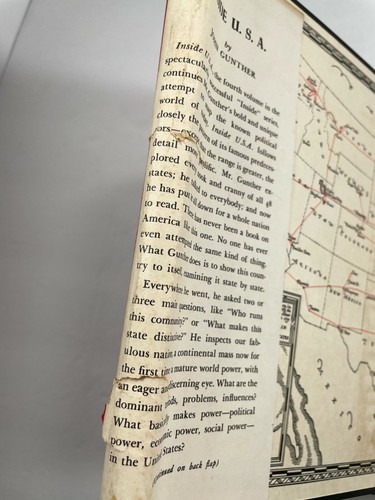 DE U. S. A.
by
John GUNTHER
Inside U.S.A., the fourth volume in the
spectacularly successful "Inside" series,
continues Mr. Gunther's bold and unique
attempt to the known political
world of today. Inside U.S.A. follows
closely the pattern of its famous predeces-
sors—except the range is greater, the
detail more prolific. Mr. Gunther ex-
plored every nook and cranny of all 48
states; he talked to everybody; and now
he has put it all down for a whole nation
to read. There has never been a book on
America like this one. No one has ever
even attempted the same kind of thing.
What Gunther does is to show this coun-
try to itself, examining it state by state.
Everywhere he went, he asked two or
three main questions, like "Who runs
this community?" or "What makes this
state distinctive?" He inspects our fab-
ulous nation, a continental mass now for
the first time a mature world power, with
an eager and discerning eye. What are the
dominant, problems, influences?
What basically makes power—political
power, economic power, social power—
in the United States?
(continued on back flap)
NEW MEXICO